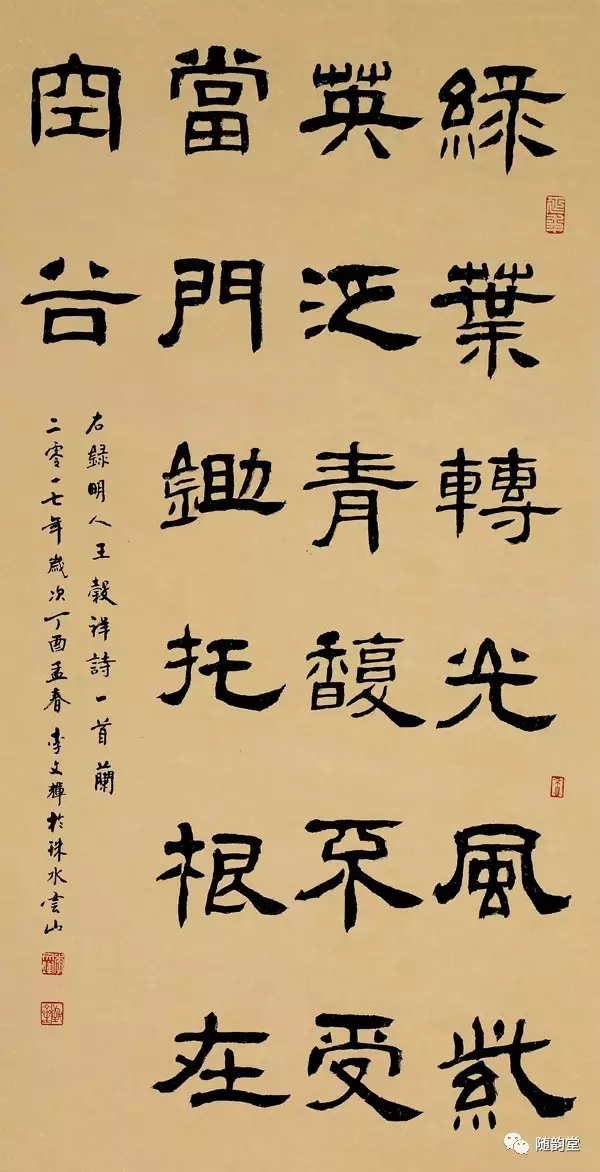 緑葉轉光風紫
英泛青馥不受
當門鋤托根在
空谷
右錄明人王穀祥詩一首蘭
二零一七年歲次丁酉孟春李文輝於珠水雲山
随韵堂